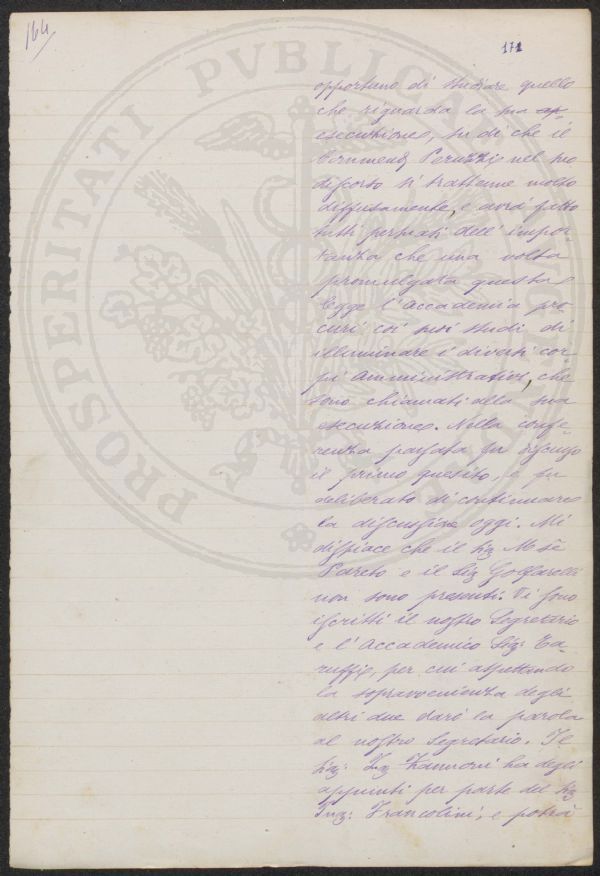 164
171
PROSPERITATI PVBLICAE
opportuno di studiare quello
che riguarda la sua
esecuzione, su di che il
Peruzzi nel suo
discorso si trattenne molto
diffusamente, e avrà fatto
tutti persuasi dell' impor-
tanza che una volta
promulgata questa
legge l'Accademia pro-
curi coi suoi studi di
illuminare i diversi cor-
pi Amministrativi, che
sono chiamati alla sua
esecuzione. Nella confe-
renza passata fu discusso
il primo quesito, e fu
deliberato di continuare
la discussione oggi. Mi
dispiace che il Sig M.se
Pareto e il Sig Golfarelli
non sono presenti. Vi sono
iscritti il nostro Segretario
e l' Accademico Sig: Ta-
ruffi, per cui aspettando
la sopravvenienza degli
altri due darò la parola
al nostro Segretario. Il
Sig: Ing Zannoni ha degli
appunti per parte del Sig
Ing: Francolini, e potrà